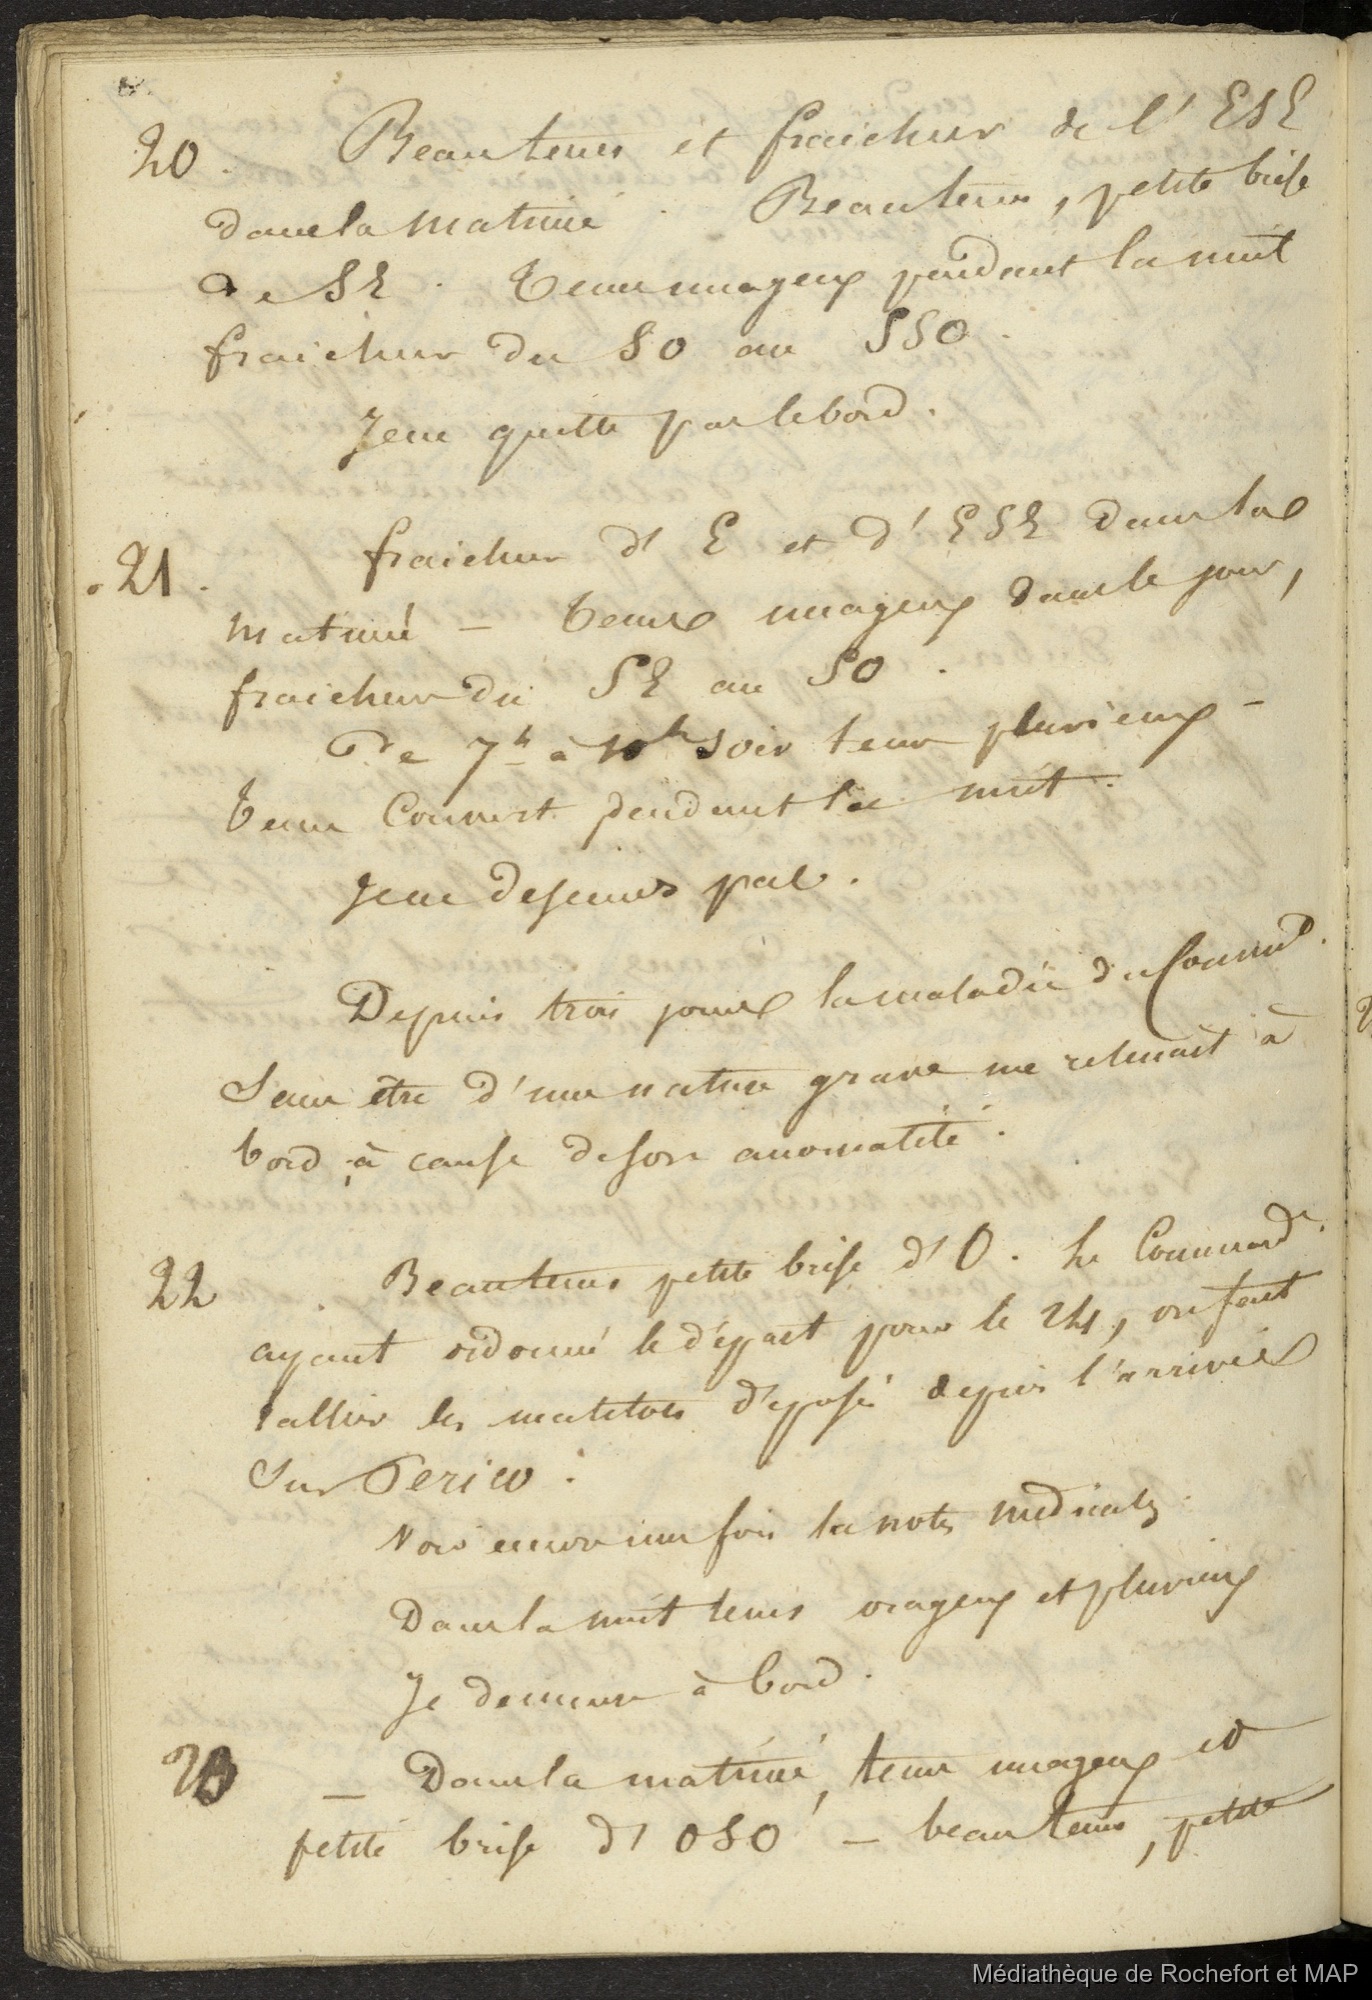 20. Beau tems et fraicheur de l'ESE
dans la matinée. Beau tems, petite brise
de SE. Tems nuageux pendant la nuit
fraicheur du SO au SSO.
Je ne quitte pas le bord.
21. fraicheur d'E et d'ESE dans la
matinée – Tems nuageux dans le jour,
fraicheur du SE au SO.
De 7h à 10h soir tems pluvieux –
Tems couvert pendant la nuit.
Je ne descends pas.
Depuis trois jours la maladie du Command.
sans être d'une nature grave me retenait à
bord, à cause de son anomalité.
22. Beau tems petite brise d'O. Le Command.
ayant ordonné le départ pour le 24, on fait
rallier les matelots déposés depuis l'arrivée
sur Perico.
Voir encore une fois les notes medicales.
Dans la nuit tems orageux et pluvieux
Je demeure à bord.
23 – Dans la matinée, tems nuageux et
petite brise d'OSO – beau tems, petite
Médiathèque de Rochefort et MAP